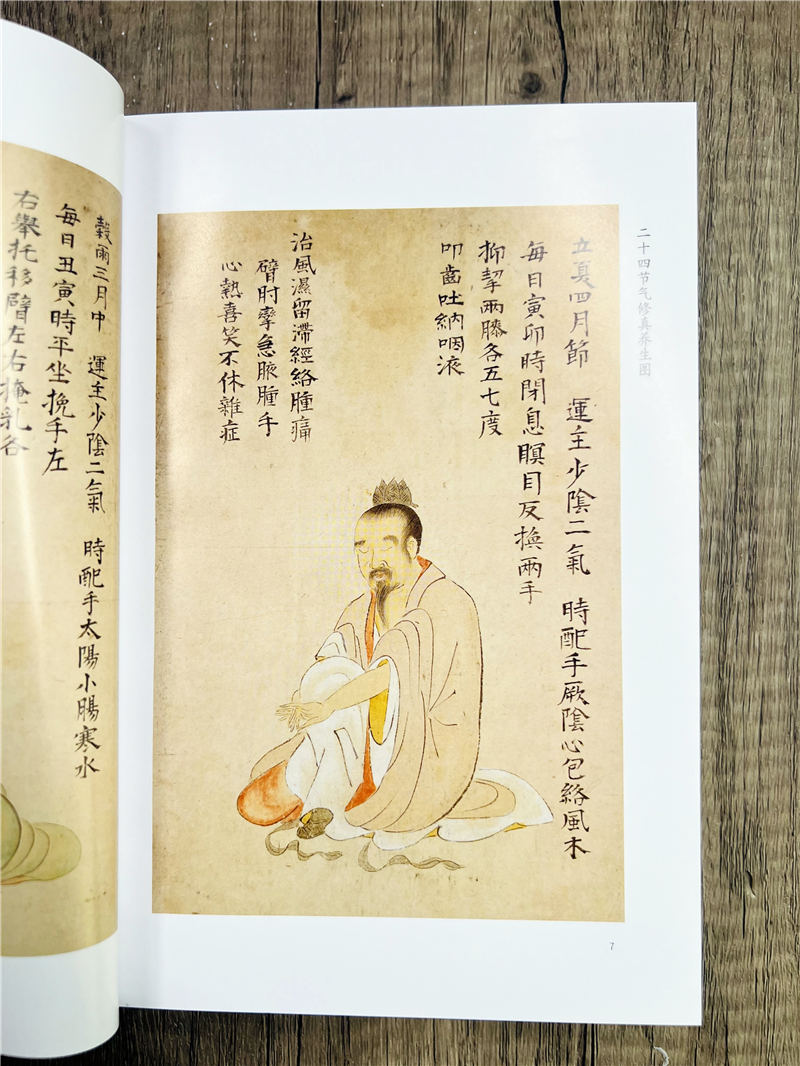 二十四节气修真养生图
立夏四月節　運主少陰二氣　時配手厥陰心包絡風木
每日寅卯時閉息瞑目反換兩手
抑挈兩膝各五七度
叩齒吐納咽液
治風濕留滯經絡腫痛
臂肘攣急腋腫手
心熱喜笑不休雜症
7
穀雨三月中　運主少陰二氣　時配手太陽小腸寒水
每日丑寅時平坐挽手左
右舉托移臂左右掩乳各